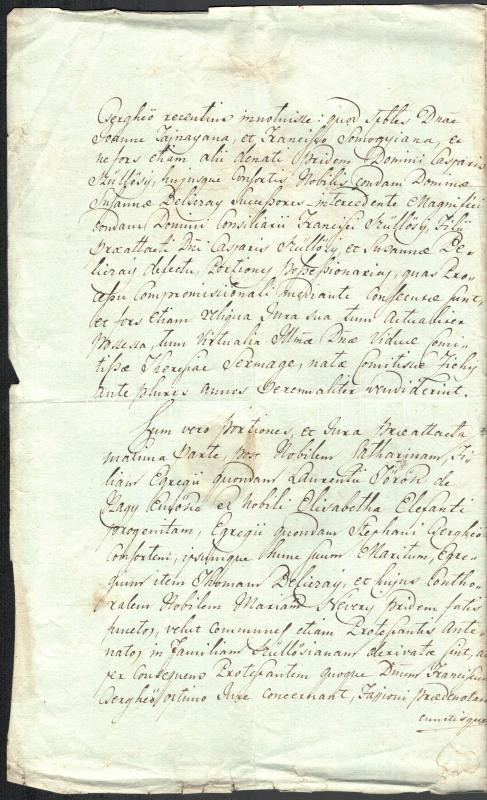 Cserghëo recentius innotuisse: quod Spbles Dnae
Joanna Tajnayana, et Francisca Somogyiana, et
ne fors etiam alii denati pridem Domini Casparis
Szüllösy, hujusque Consortis Nobilis condam Dominae
Susannae Deliczay Successores intercedente Magnifici
condam Domini Consiliarii Francisci Szüllösy, Filii
praeattacti Dni Casparis Szüllösy, et Susannae De-
liczay delectu, Portiones Possessionarias, quas Pro-
cessu Compromissionali mediante Consecutae sunt,
et fors etiam reliqua Jura sua tum Actualiter
Possessa, tum Virtualia Illmae Dnae Viduae Comi-
tissae Theresiae Sermage, natae Comitissae Zichy
ante plures annos Perennaliter vendiderint.
Cum vero Portiones, et Jura Praeattacta
maxima Parte, post Nobilem Catharinam, Fi-
liam Egregii quondam Laurentii Török de
Nagy Emöke ex Nobili Elisabetha Elefanti
progenitam, Egregii quondam Stephani Cserghëo
Consortem, ipsumque hunc suum Maritum, Egre-
gium item Thomam Deliczay, et hujus Contho-
ralem Nobilem Mariam Nevery pridem fatis
functos, velut communes etiam Protestantis Ante-
natos, in Familiam Szüllösianam derivatae sint, ac
per Consequens Protestantem quoque Dnum Franciscum
Cserghëo optimo Jure concernant, Fassioni praenotatae
cunctisque